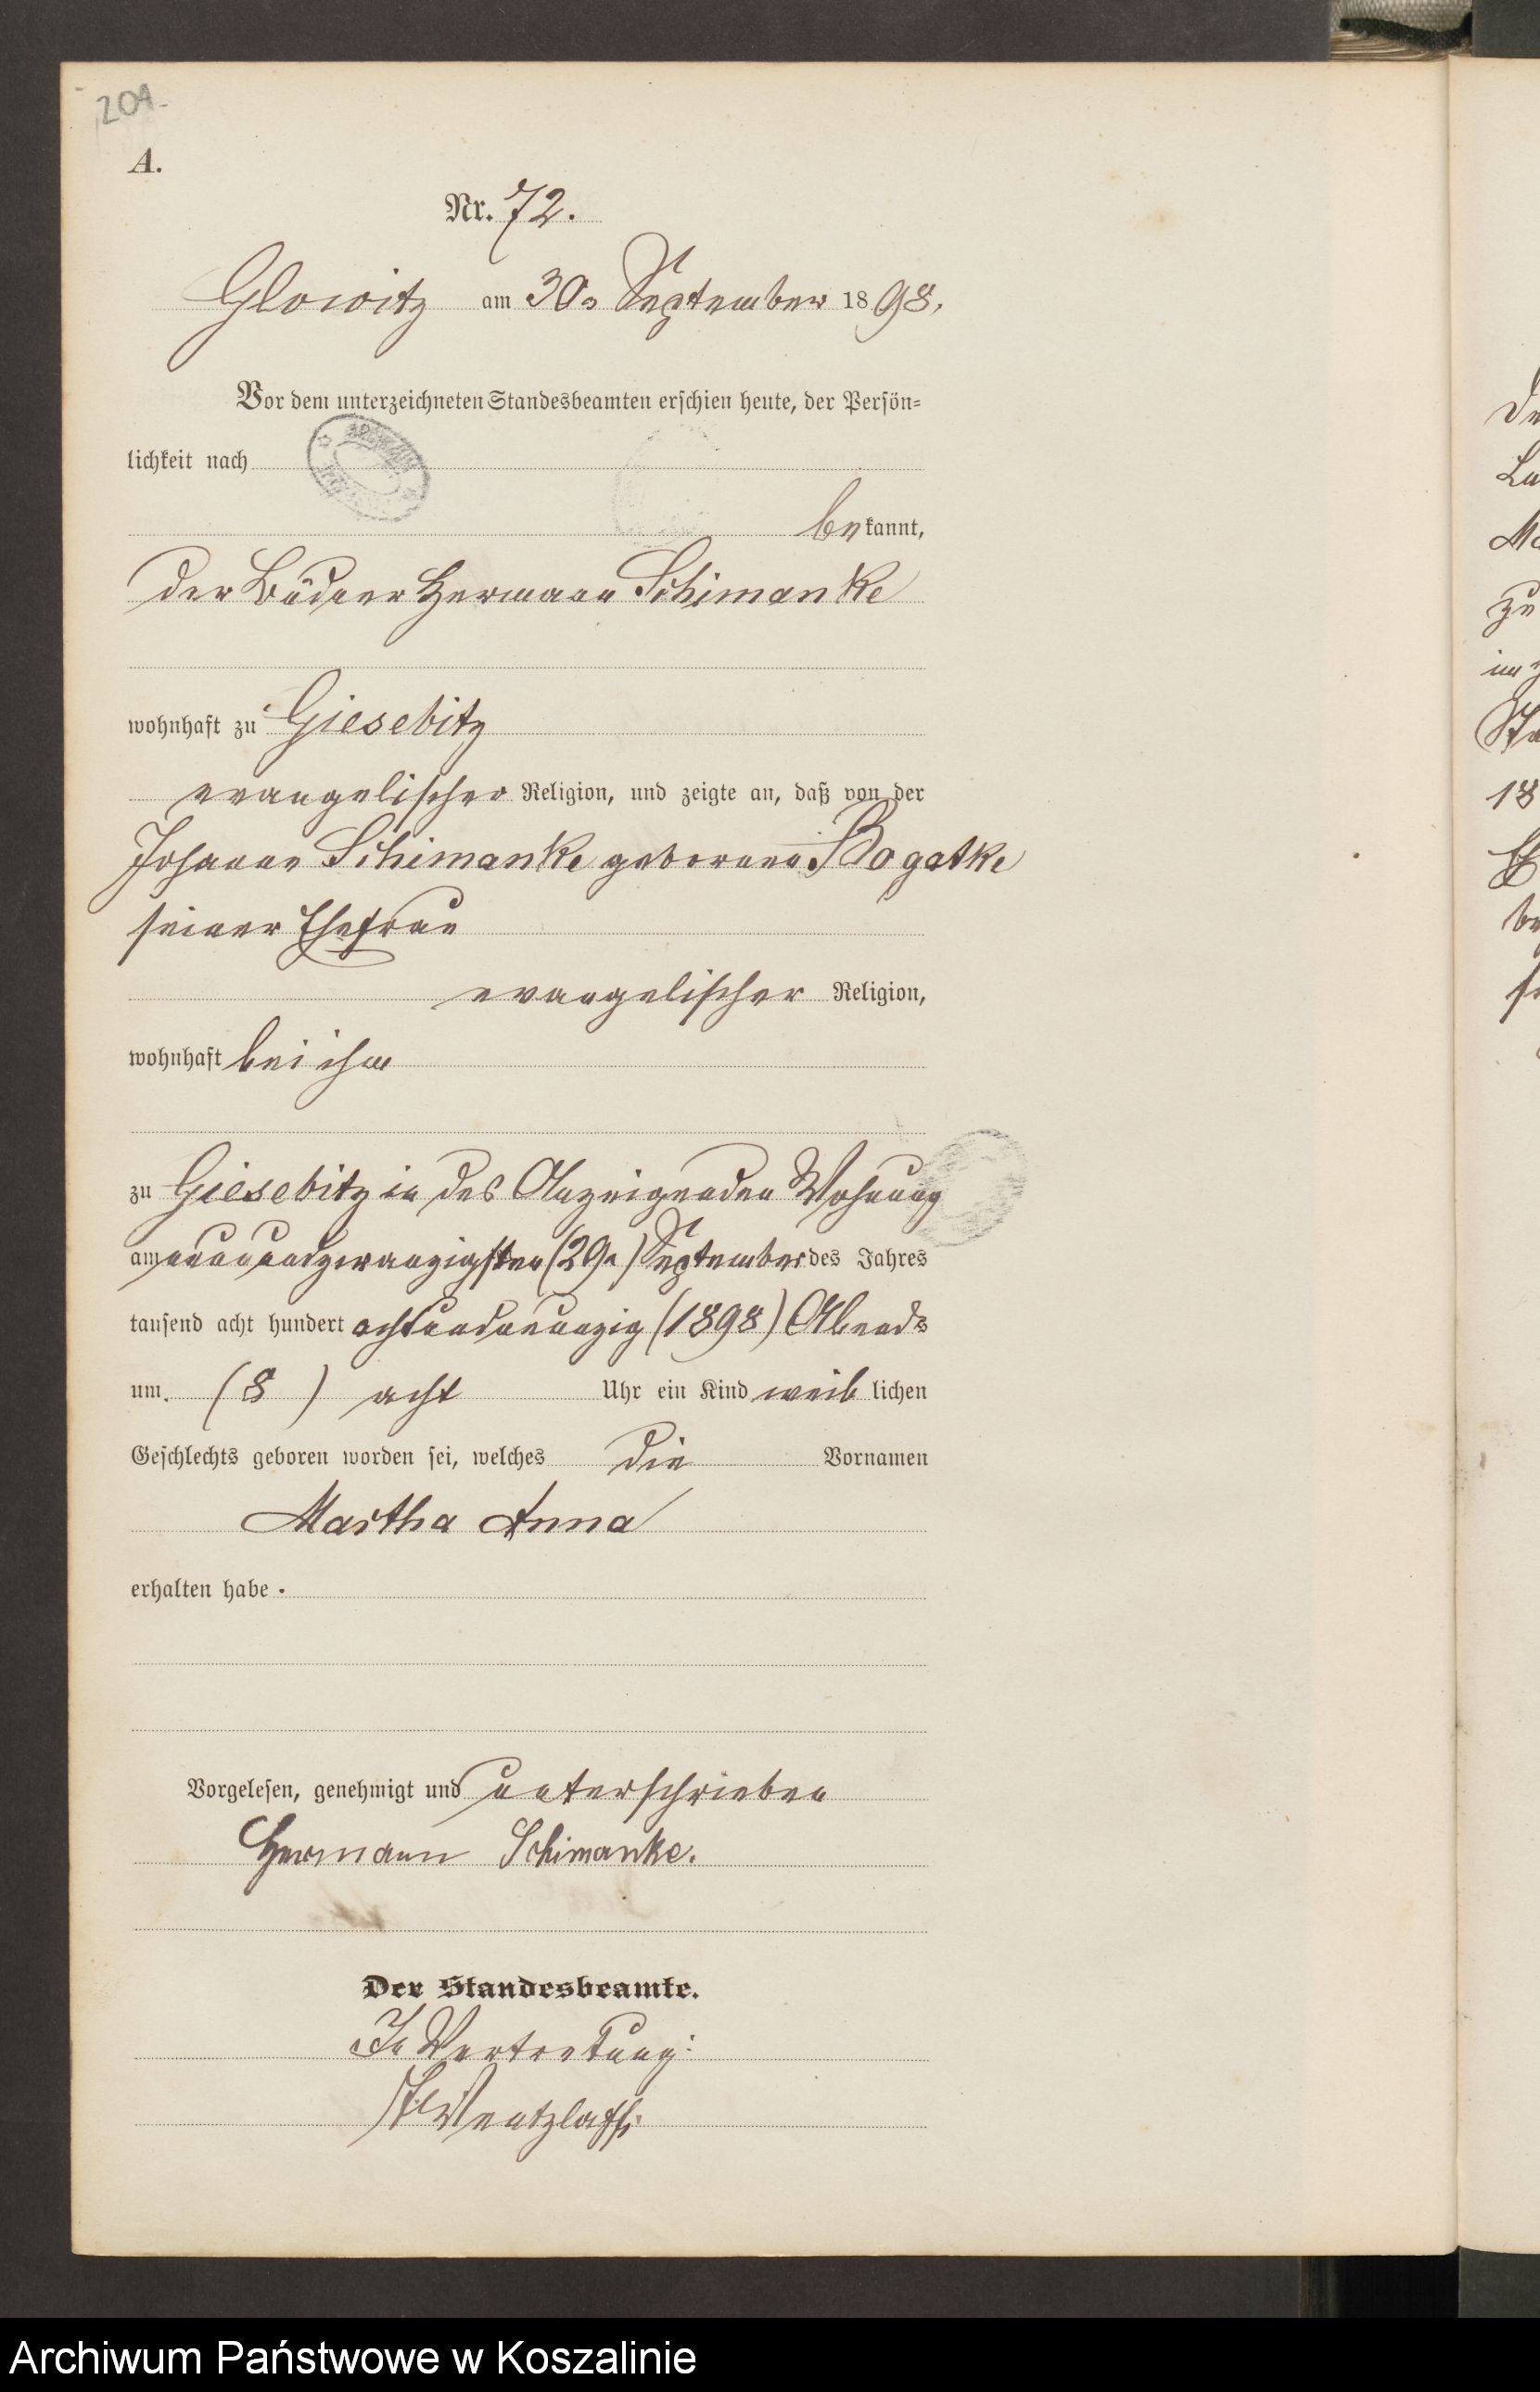 204.
A.
Nr. 72.
Glowitz am 30. September 1898.
Vor dem unterzeichneten Standesbeamten erschien heute, der Persön-
lichkeit nach
bekannt,
der Büdner Hermann Schimanke
wohnhaft zu Giesebitz
evangelischer Religion, und zeigte an, daß von der
Johanne Schimanke geborene Bogatke
seiner Ehefrau
evangelischer Religion,
wohnhaft bei ihm
zu Giesebitz in des Anzeigenden Wohnung
am neunundzwanzigsten (29.) September des Jahres
tausend acht hundert achtundneunzig (1898) Abends
um. (8) acht Uhr ein Kind weiblichen
Geschlechts geboren worden sei, welches die Vornamen
Martha Anna
erhalten habe.
Vorgelesen, genehmigt und unterschrieben
Hermann Schimanke.
Der Standesbeamte.
In Vertretung:
Wentzlaff.
Archiwum Państwowe w Koszalinie